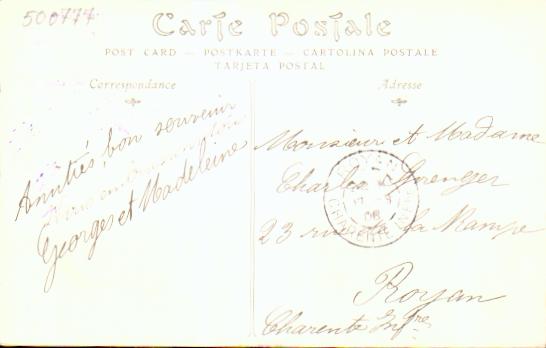 500777
Carte Postale
POST CARD — POSTKARTE — CARTOLINA POSTALE
TARJETA POSTAL
Correspondance
Adresse
Amitiés, bon souvenir
Georges et Madeleine
Monsieur et Madame
Charles
23 rue de la Rampe
Royan
Charente Infre
ROYAN
CHARENTE
08